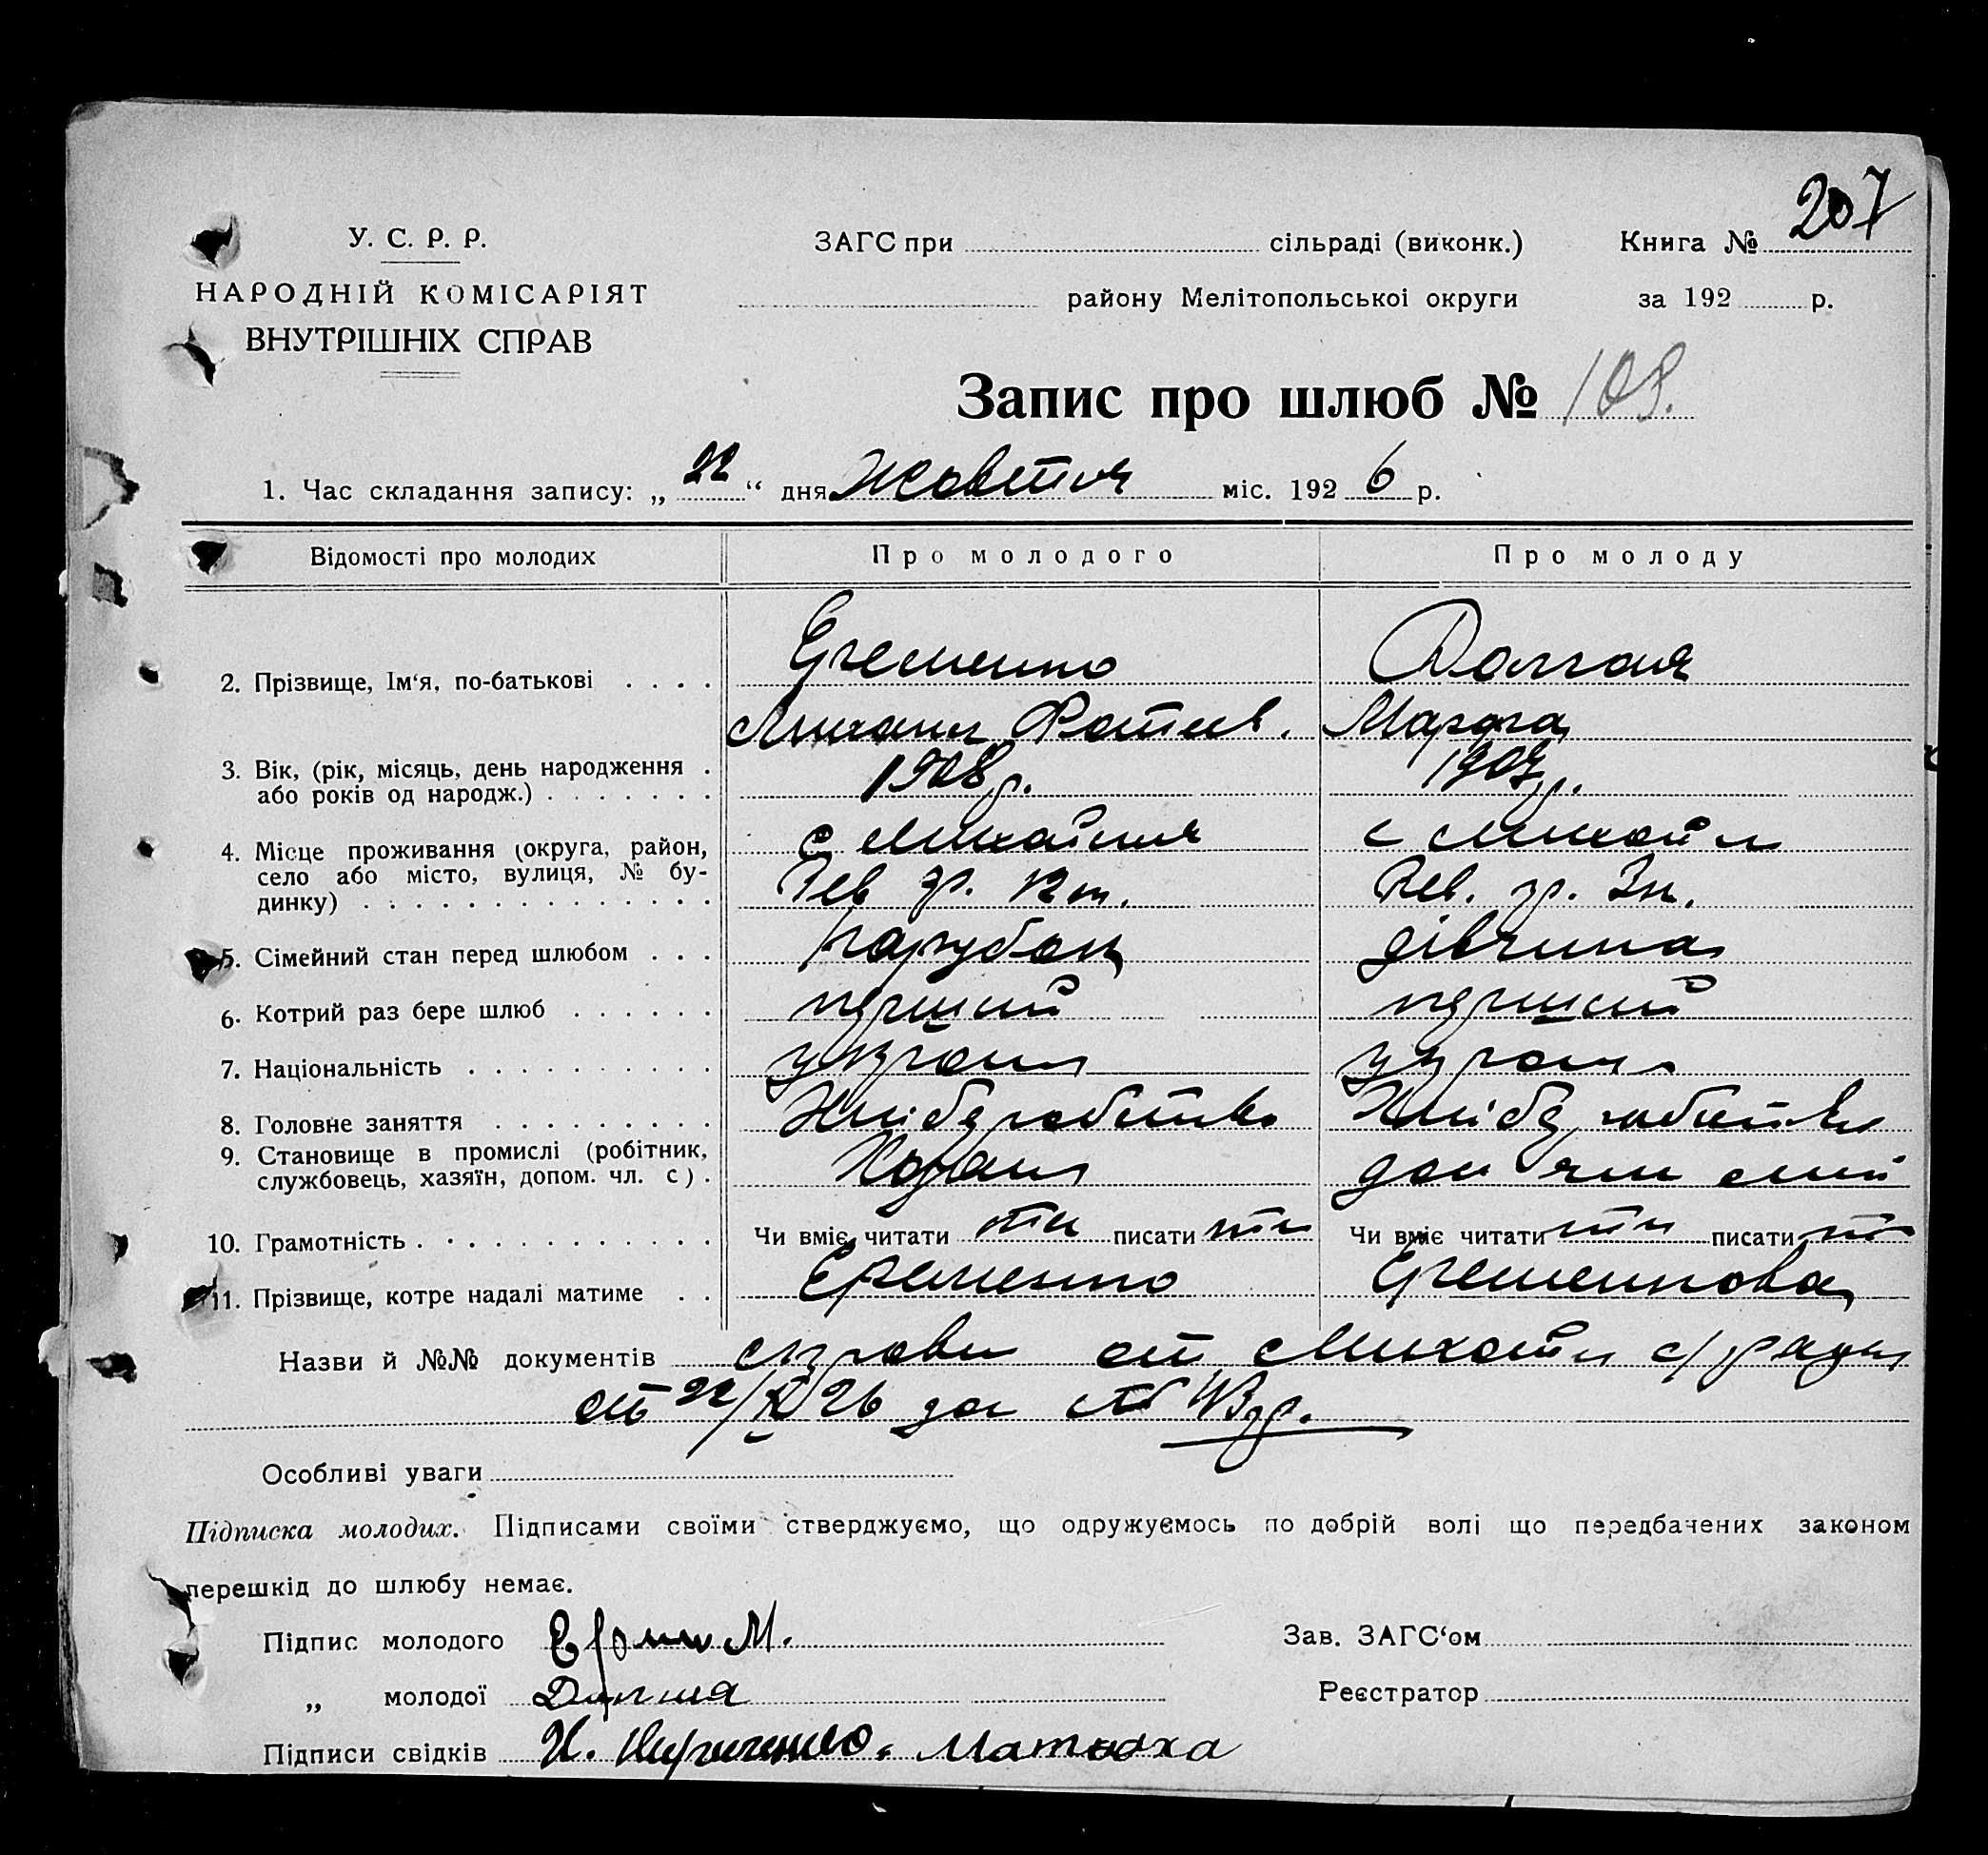 207
У. С. Р. Р.
ЗАГС при сільраді (виконк.) Книга №
НАРОДНІЙ КОМІСАРІЯТ
району Мелітопольськоі округи за 192 р.
ВНУТРІШНІХ СПРАВ
Запис про шлюб № 109.
1. Час складання запису: „22“ дня Жовтня міс. 1926 р.
Відомості про молодих Про молодого Про молоду
2. Прізвище, Ім‘я, по-батькові . . . . Еременко Долгая
Михаил Фотиев. Марфа
3. Вік, (рік, місяць, день народження . 1908 р. 1907 р.
або років од народж.) . . . . . . .
4. Місце проживання (округа, район, с Михайл с Михайл
село або місто, вулиця, № бу- Рев.
динку) . . . . . . . . . . . . . .
5. Сімейний стан перед шлюбом . . . парубок дівчина
6. Котрий раз бере шлюб . . . . . . перший перший
7. Національність . . . . . . . . . . україн україн
8. Головне заняття . . . . . . . . . Хлібробство Хлібробство
9. Становище в промислі (робітник,
службовець, хазяїн, допом. чл. с) .
10. Грамотність . . . . . . . . . . . Чи вміє читати писати Чи вміє читати писати
11. Прізвище, котре надалі матиме . . Еременко Еременкова
Назви й №№ документів от Михайл с/ради
от 22/X 26 за №
Особливі уваги
Підписка молодих. Підписами своїми стверджуємо, що одружуємось по добрій волі що передбачених законом
перешкід до шлюбу немає.
Підпис молодого М. Зав. ЗАГС‘ом
„ молодої Реєстратор
Підписи свідків Матюха